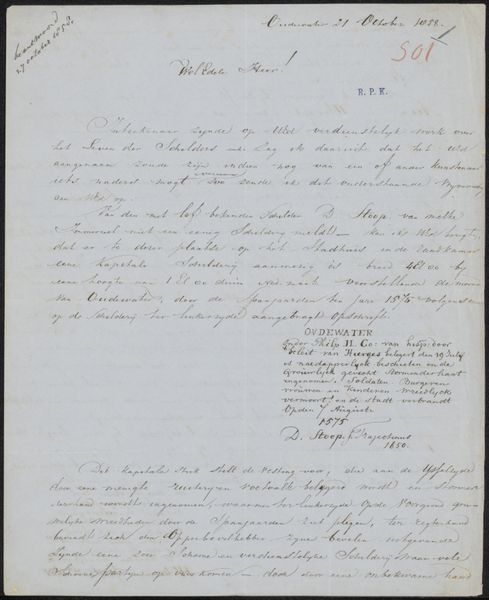 Oudewater 21 October 1858.
beantwoord
27 october 1858.
501
WelEdele Heer!
R. P. K.
zynde op UEd verdienstelyk werk over
het Leven der Schilders zag ik daaruit dat het UEd
aangenaam zoude zijn indien nog van een of ander Kunstenaar
iets naders mogt zoo zoude ik dit onderstaande
van UEd op.
Van den met lof bekenden Schilder D. Stoop van welke
Immerzeel niet een eenig Schildery meldt kan ik UEd
dat er te dezer plaatse op het Stadhuis in de Raadkamer
eene Kapitale Schildery aanwezig is breed 4 El 00 by
eene hoogte van 1 El 00 duim Ned. maat voorstellende de
van Oudewater, door de Spanjaarden ten jare 1575 volgens
op de Schildery ter linkerzyde aangebragt opschrift.
OVDEWATER
onder Philip II. Co: van hisp: door
beleit van Hierges belegert den 19 July
is naedapperlyck beschieten en de
Grouwlyck gevecht Stormenderhant
ingenomen, Soldaten Burgeren
vrouwen en Kinderen wreedlyck
vermoort en de stadt verbrandt
Opden 7 Augusti
1575
D. Stoop f. Trajectinus
1650.
Dit Kapitale Stuk stelt de vesting voor, die aan de Ysselzyde
door eene menigte ruiteryen voetvolk belegerd wordt en
wordt ingenomen, waarna ter linkerzyde op de Voorgrond
wreedheden door de Spanjaarden ziet plegen, ter regterhand
bevindt zich den Opperbevelhebber zyne bevelen
Zynde eene zeer Schoone en verdienstelyke Schildery waar vele
Schoone partyen op voorkomen — doch door eene onbekwame hand